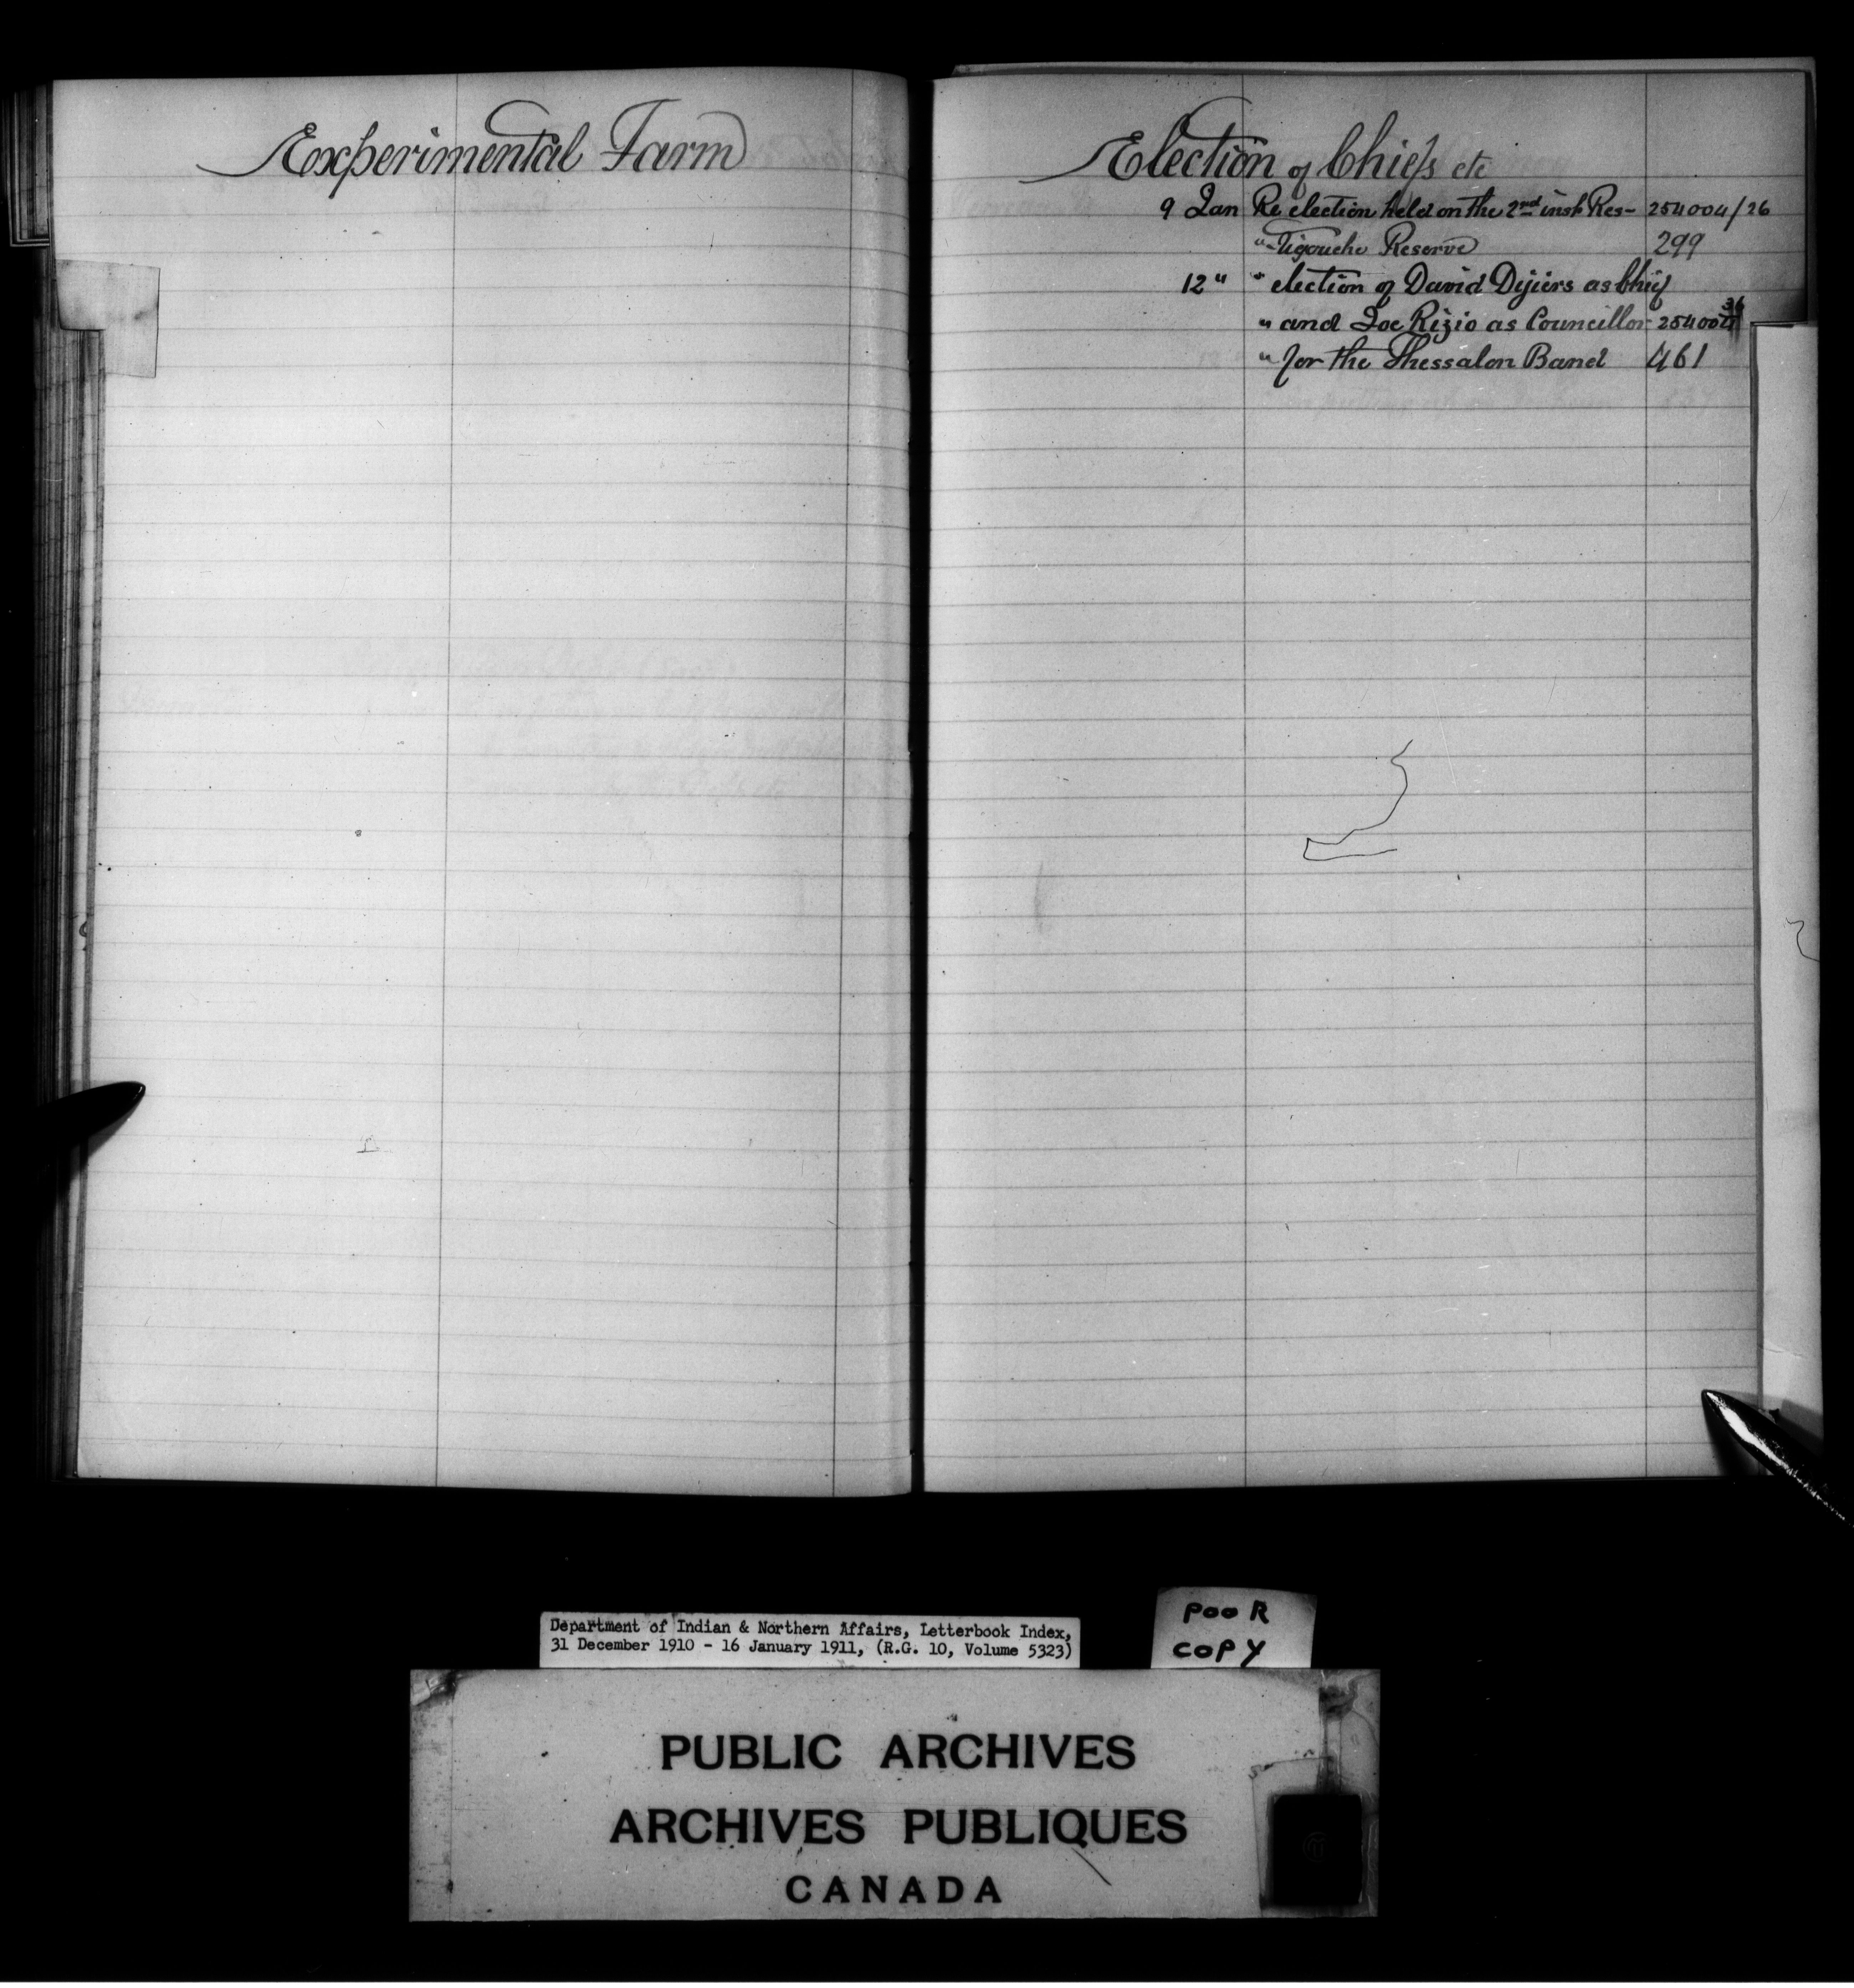 Experimental Farm
Election of Chiefs etc
9 Jan Re election held on the 2nd inst Res- 254004/26
" -tigouche Reserve 299
12 " " election of David Dijiers as Chief
" and Joe Rizio as Councillor 254004 36
" for the Thessalon Band 461
Department of Indian & Northern Affairs, Letterbook Index,
31 December 1910 - 16 January 1911, (R.G. 10, Volume 5323)
POOR
COPY
PUBLIC ARCHIVES
ARCHIVES PUBLIQUES
CANADA